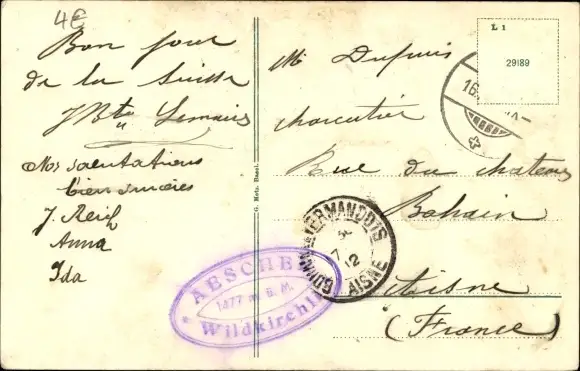 4€
Bon jour
de la Suisse
J Bte Lemaire
Nos salutations
bien sincères
J. Reich
Anna
Ida
G. Metz, Basel.
AESCHER
1477 m ü. M.
Wildkirchli
L 1
29189
16.
Mr Dupuis
charcutier
Rue du chateau
Bohain
Aisne
(France)
BOHAIN EN VERMANDOIS
7
12
AISNE